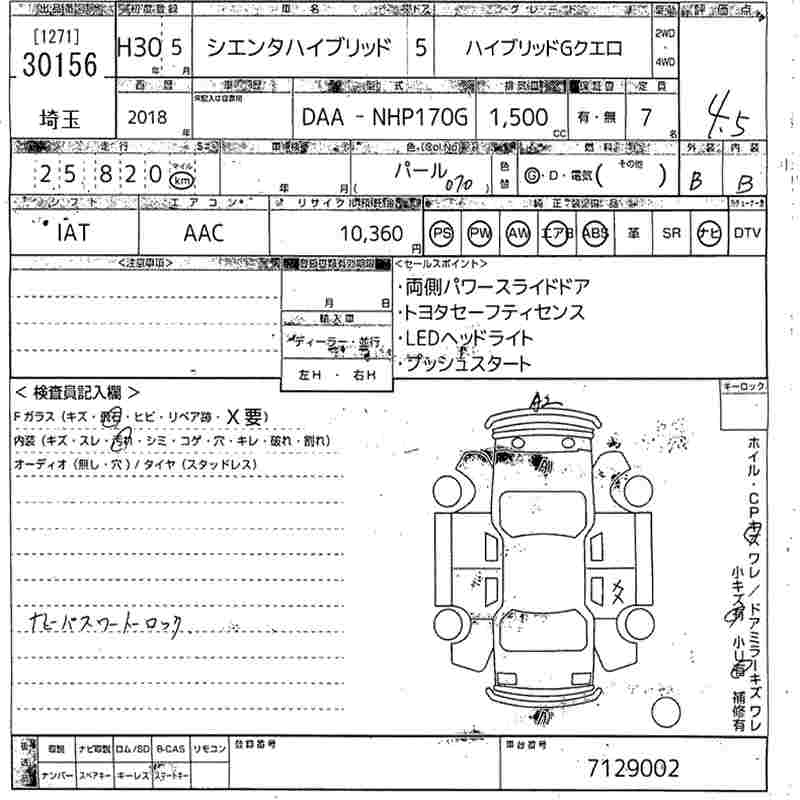 出品番号 初度登録 車名 ドス グレード 評価点
[1271]
30156
H30 5
年 月
シエンタハイブリッド 5 ハイブリッドGクエロ
2WD
・
4WD
4.5
西暦 車歴 型式 排気量 保証書 定員
埼玉 2018 年 DAA - NHP170G 1,500 CC 有・無 7 名
走行 車検 色(Col No) 燃料 外装 内装
25820 マイル km
年 月
パール 070
色替
G・D・電気( その他 ) B B
シフト エアコン リサイクル 純正装備品
IAT AAC 10,360 円 PS PW AW エアB ABS 革 SR ナビ DTV
<注意事項> 登録書類有効期限 <セールスポイント>
月 日
輸入車
ディーラー・並行
左H ・ 右H
・両側パワースライドドア
・トヨタセーフティセンス
・LEDヘッドライト
・プッシュスタート
< 検査員記入欄 >
キーロック
Fガラス(キズ・飛石・ヒビ・リペア跡・X要)
内装(キズ・スレ・汚れ・シミ・コゲ・穴・キレ・破れ・割れ)
オーディオ(無し・穴)/タイヤ(スタッドレス)
A2
ホイル・CPキズ ワレ/ドアミラーキズ ワレ
小キズ有 小U有 補修有
ナビーパスワードロック
取説 ナビ取説 ロム/SD B-CAS リモコン 登録番号 車台番号
ナンバー スペアキー キーレス スマートキー
7129002